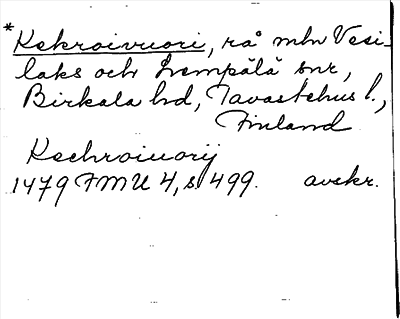 * Kekroivuori, rå mln Vesi-
laks och Lempälä snr,
Birkala hd, Tavastehus l.,
Finland
Kechroiuorij
1479 FMU 4, s. 499. avskr.